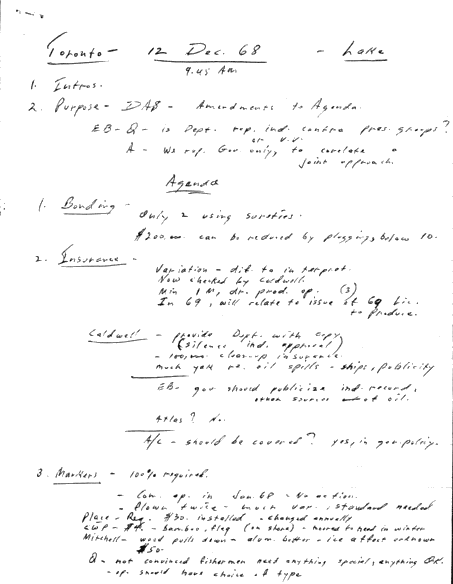 Toronto - 12 Dec. 68 - Lake
9.45 Am
1. Intros.
2. Purpose - DAS - Amendments to Agenda.
EB - Q - is Dept. rep. ind. contra pres. groups?
or v.v.
A - We rep. Gov only, to correlate a
joint approach.
Agenda
1. Bonding -
Only 2 using sureties.
$200,000 can be reduced by pluggings below 10.
2. Insurance -
Variation - dif. to interpret.
Now checked by Caldwell.
Min 1 M, dr. prod. op. (3)
In 69, will relate to issue of 69 Lic.
to produce.
Caldwell - provide Dept. with copy
(silence ind. approval)
- 100,000 clean-up insurance.
much yak re. oil spills - ships, publicity
EB - gov should publicize ind. record,
other sources of oil.
Atlas? No.
A/c - should be covered? yes, in gen. policy.
3. Markers - 100% required.
- Com. op. in Jan. 68 - No action.
- Plown twice - much var. standard needed
Place - Reg. $30. installed - changed annually
CWP - $4. - bamboo, flag (on shore) - no need in winter
Mitchell - wood pulls down - alum. better - ice affect unknown
$50.
Q - not convinced fishermen need anything special, anything OK.
- op. should have choice of type